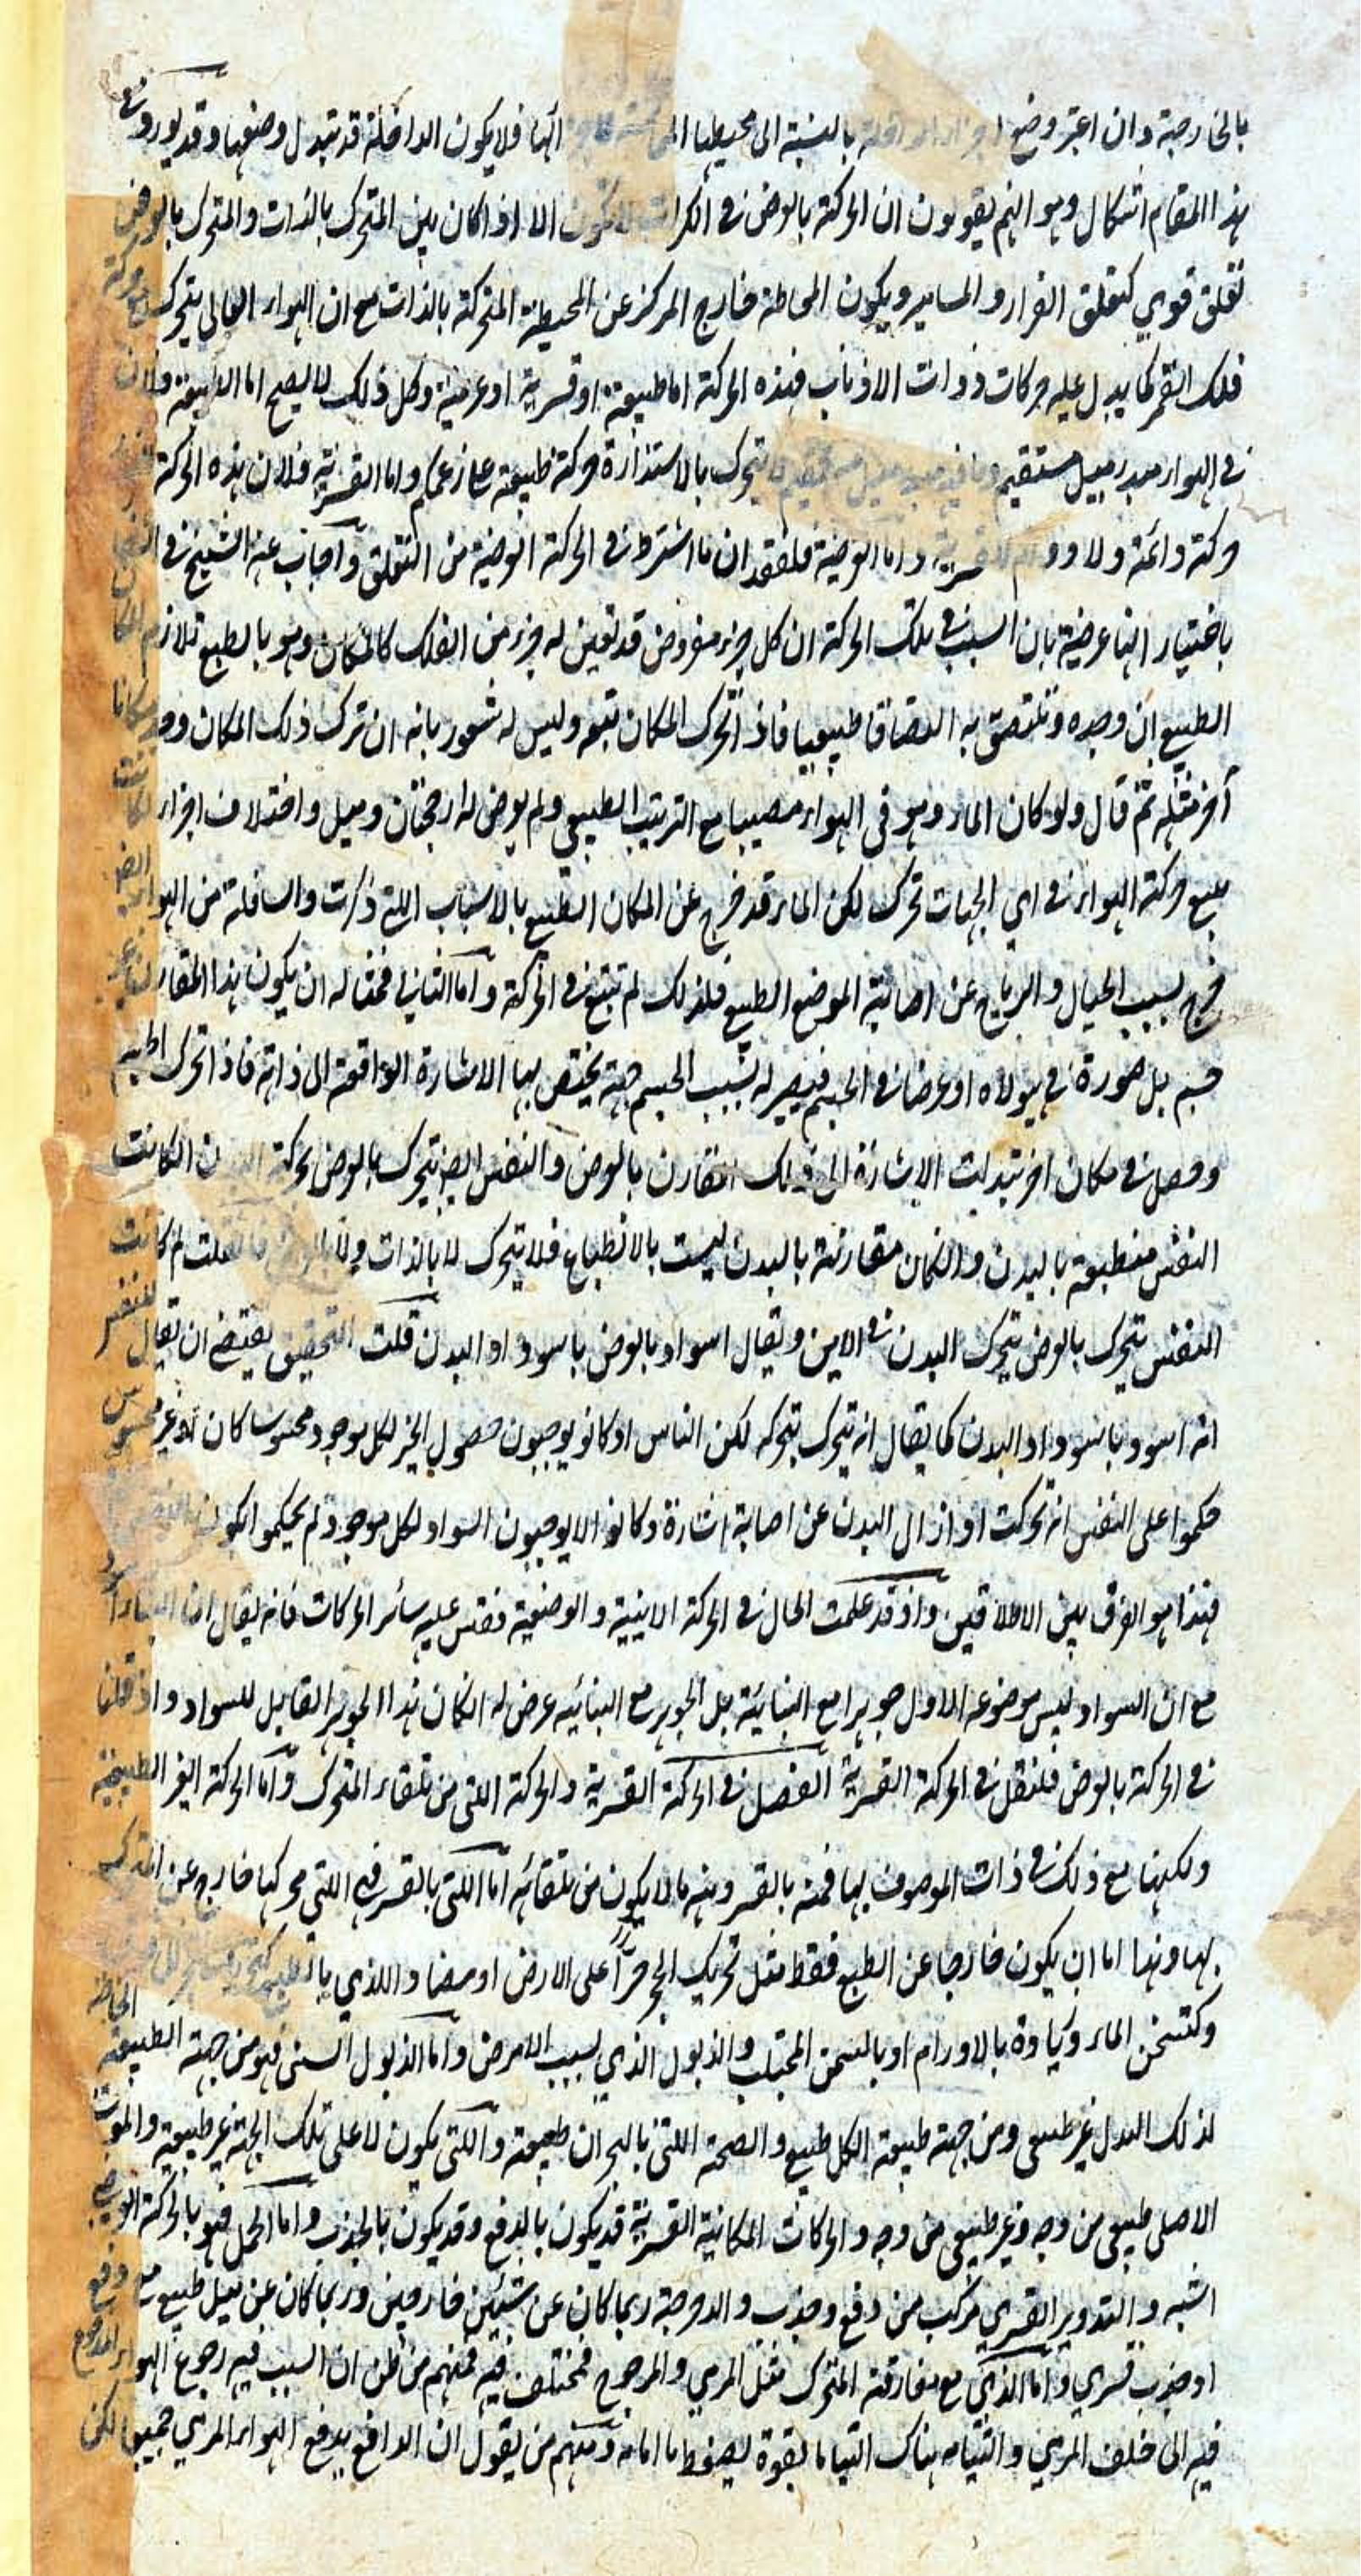 بالخارجة وان اعتبر وضع اجزاء الداخلة بالنسبة الى محيطها انها فلا يكون الداخلة قد تبدل وضعها وقد يورد على
هذا المقام اشكال وهو انهم يقولون ان الحركة بالعرض فى الكرات لا تكون الا اذا كان بين المتحرك بالذات والمتحرك بالعرض
تعلق قوي كتعلق الغرار والمسامير ويكون المحاطة خارج المركز عن المحيطة المتحركة بالذات مع ان الهواء العالى يتحرك بحركة
فلك القمر كما يدل عليه حركات ذوات الاذناب فهذه الحركة اما طبيعة او قسرية او عرضية وكل ذلك لا يصح اما الطبيعة فلان
فى الهواء مبدء ميل مستقيم وما فيه مبدء ميل مستقيم لا يتحرك بالاستدارة حركة طبيعة على زعمكم واما القسرية فلان هذه الحركة
حركة دائمة ولا دوام للقسرية واما العرضية فلفقدان ما اشترط فى الحركة العرضية من التعلق واجاب عنه الشيخ فى
باختيار انها عرضية بان السبب فى تلك الحركة ان كل جزء مفروض قد تعين له جزء من الفلك كالمكان وهو بالطبع تلازم
الطبيع ان وجده وتلتصق به التصاقا طبيعيا فاذا تحرك المكان تبعه وليس له شعور بانه ان ترك ذلك المكان وجد مكانا
آخر مثله ثم قال ولو كان الماء وهو فى الهواء مصيبا مع الترتيب الطبيعي ولم يعرض له ارجحنان وميل واختلاف اجزاء لكانت
يتبع حركة الهواء فى اى الجهات تحرك لكن الماء قد خرج عن المكان الطبيع بالاسباب التى ذكرت والسافلة من الهواء ايضا
خرج بسبب الجبال والرياح عن اصابة الموضع الطبيع فلذلك لم تتبع فى الحركة واما الثانى فمثاله ان يكون هذا المقارن غير
جسم بل صورة فى هيولاه او عرضا فى الجسم فيصير له بسبب الجسم جهة يختص بها الاشارة الواقعة الى ذاته فاذا تحرك الجسم
وحصل فى مكان اخر تبدلت الاشارة الى ذلك المقارن بالعرض والنفس ايضا يتحرك بالعرض بحركة البدن ان كانت
النفس منطبعة بالبدن وان كان مقارنته بالبدن ليست بالانطباع فلا يتحرك لا بالذات ولا بالعرض فان قلت لم كانت
النفس يتحرك بالعرض يتحرك البدن فى الاين ويقال اسود بالعرض باسوداد البدن قلت التحقيق يقتضى ان يقال للنفس
انه اسود باسوداد البدن كما يقال انه يتحرك بتحركه لكن الناس اذ كانوا يوجبون حصول الحيز لكل موجود محسوسا كان او غير محسوس
حكموا على النفس انه تحركت اذا زال البدن عن اصابة اشارة وكانوا لا يوجبون السواد لكل موجود لم يحكموا
فهذا هو الفرق بين الاطلاقين واذ قد علمت الحال فى الحركة الاينية والوضعية فقس عليه سائر الحركات فانه يقال ان البناء اسود
مع ان السواد ليس موضوعه الاول جوهرا مع البنائية بل الجوهر مع البنائيه عرض له ان كان هذا الجوهر القابل للسواد واذ قلنا
فى الحركة بالعرض فلنقل فى الحركة القسرية الفصل فى الحركة القسرية والحركة التى من تلقاء المتحرك واما الحركة الغير الطبيعية
ولكنها مع ذلك فى ذات الموصوف بها فمنه بالقسر ومنه ما لا يكون من تلقائه اما اللتى بالقسر فهى اللتى محركها خارج عن المتحرك
بها وهذا اما ان يكون خارجا عن الطبع فقط مثل تحريك الحجر جرّا على الارض او مضادا اللذي بالطبع
وكتسخن الماء وكزيادة بالاورام او بالسمن المجتلب والذبول الذي بسبب الامراض واما الذبول السنى فهو من جهة الطبيعة
لذلك البدل غير طبيعى ومن جهة طبيعة الكل طبيع والصحة اللتى بالبحران طبيعية واللتى يكون لا على تلك الجهة غير طبيعية والموت
الاصلى طبيعى من وجه وغير طبيعى من وجه والحركات المكانية القسرية قد يكون بالدفع وقد يكون بالجذب واما الحمل فهو بالحركة العرضية
اشبه والتدوير القسري مركب من دفع وجذب والدحرجة ربما كان عن شيئين خارجين وربما كان عن ميل طبيع مع دفع
او جذب قسري واما الذي مع مفارقة المتحرك مثل المرمي والمدحرج فمختلف فيه فمنهم من ظن ان السبب فيه رجوع الهواء المدفوع
فيه الى خلف المرمي والتيامه هناك التياما بقوة يضغط ما امامه ومنهم من يقول ان الدافع يدفع الهواء والمرمي جميعا لكن